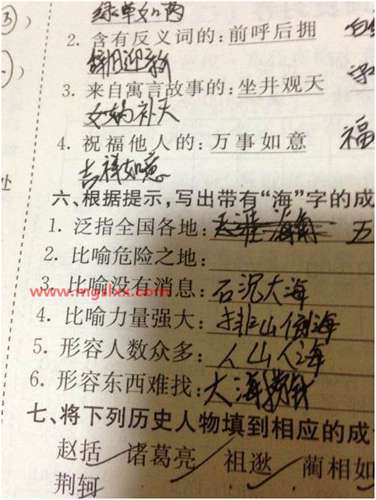 绿草如茵
2. 含有反义词的: 前呼后拥
辞旧迎新
3. 来自寓言故事的: 坐井观天
女娲补天
4. 祝福他人的: 万事如意 福
吉祥如意
处
六、根据提示,写出带有“海”字的成
1. 泛指全国各地: 天涯海角 五
2. 比喻危险之地:
3. 比喻没有消息: 石沉大海
www.mgshxx.com
4. 比喻力量强大: 排山倒海
5. 形容人数众多: 人山人海
6. 形容东西难找: 大海捞针
七、将下列历史人物填到相应的成
赵括 诸葛亮 祖逖 蔺相如
荆轲